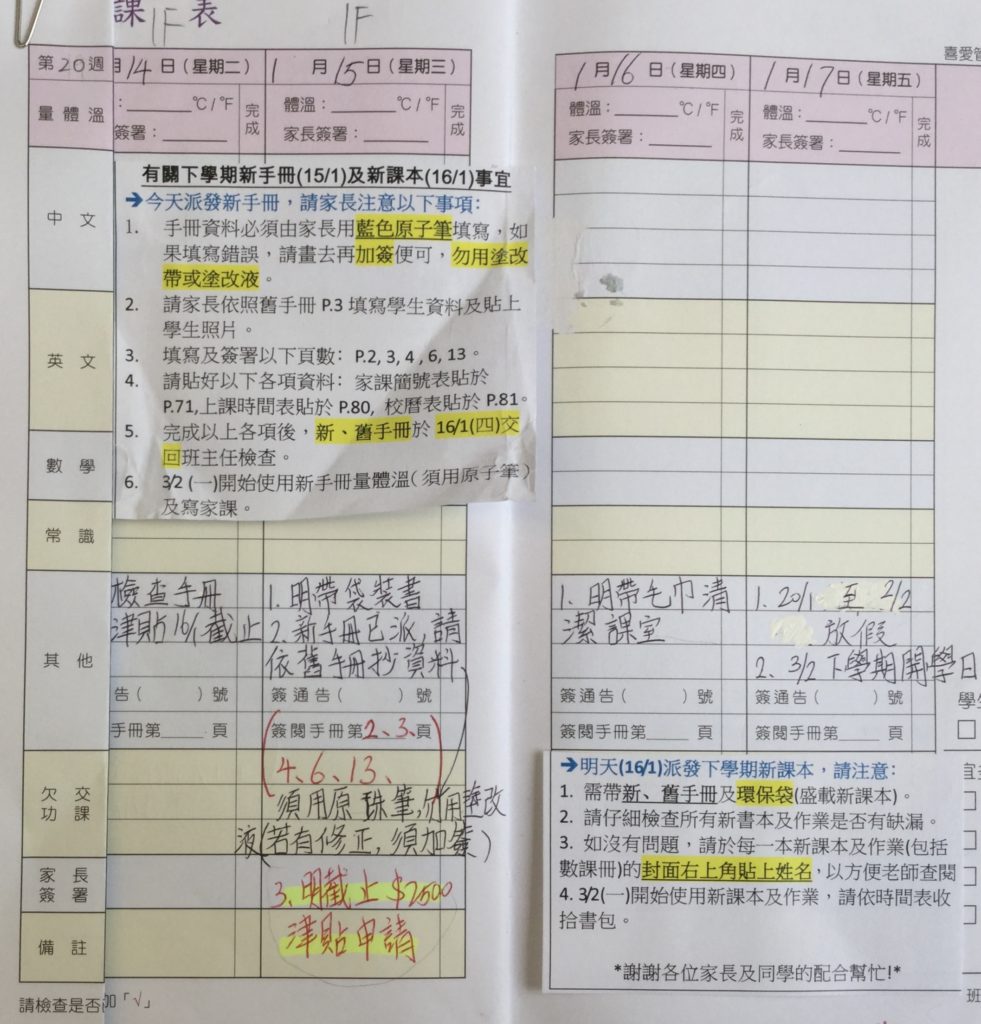 課表
1F
1F
喜愛
第20週
月14日(星期二)
1月15日(星期三)
1月16日(星期四)
1月17日(星期五)
量體溫
:______℃/℉
簽署:______
完成
體溫:______℃/℉
家長簽署:______
完成
體溫:______℃/℉
家長簽署:______
完成
體溫:______℃/℉
家長簽署:______
完成
中文
英文
數學
常識
其他
欠交功課
家長簽署
備註
有關下學期新手冊(15/1)及新課本(16/1)事宜
➔今天派發新手冊,請家長注意以下事項:
1. 手冊資料必須由家長用藍色原子筆填寫,如
果填寫錯誤,請畫去再加簽便可,勿用塗改
帶或塗改液。
2. 請家長依照舊手冊 P.3 填寫學生資料及貼上
學生照片。
3. 填寫及簽署以下頁數: P.2, 3, 4 , 6, 13。
4. 請貼好以下各項資料: 家課簡號表貼於
P.71,上課時間表貼於 P.80, 校曆表貼於 P.81。
5. 完成以上各項後,新、舊手冊於 16/1(四)交
回班主任檢查。
6. 3/2 (一)開始使用新手冊量體溫(須用原子筆)
及寫家課。
檢查手冊
津貼16/1截止
告( )號
手冊第____頁
1. 明帶袋裝書
2. 新手冊已派,請
依舊手冊抄資料、
簽通告( )號
(簽閱手冊第2、3、頁
4、6、13、)
須用原珠筆,勿用塗改
液(若有修正,須加簽)
3. 明截止$2500
津貼申請
1. 明帶毛巾清
潔課室
簽通告( )號
簽閱手冊第____頁
1. 20/1 至 2/2
放假
2. 3/2 下學期開學日
簽通告( )號
簽閱手冊第____頁
學生
➔明天(16/1)派發下學期新課本,請注意:
1. 需帶新、舊手冊及環保袋(盛載新課本)。
2. 請仔細檢查所有新書本及作業是否有缺漏。
3. 如沒有問題,請於每一本新課本及作業(包括
數課冊)的封面右上角貼上姓名,以方便老師查閱
4. 3/2(一)開始使用新課本及作業,請依時間表收
拾書包。
*謝謝各位家長及同學的配合幫忙!*
請檢查是否
「√」
班